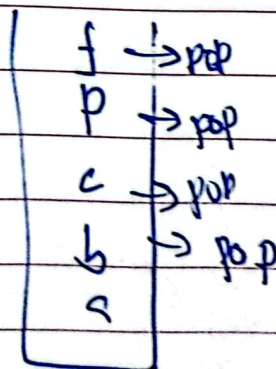 f → pop
p → pop
c → pop
b → pop
a